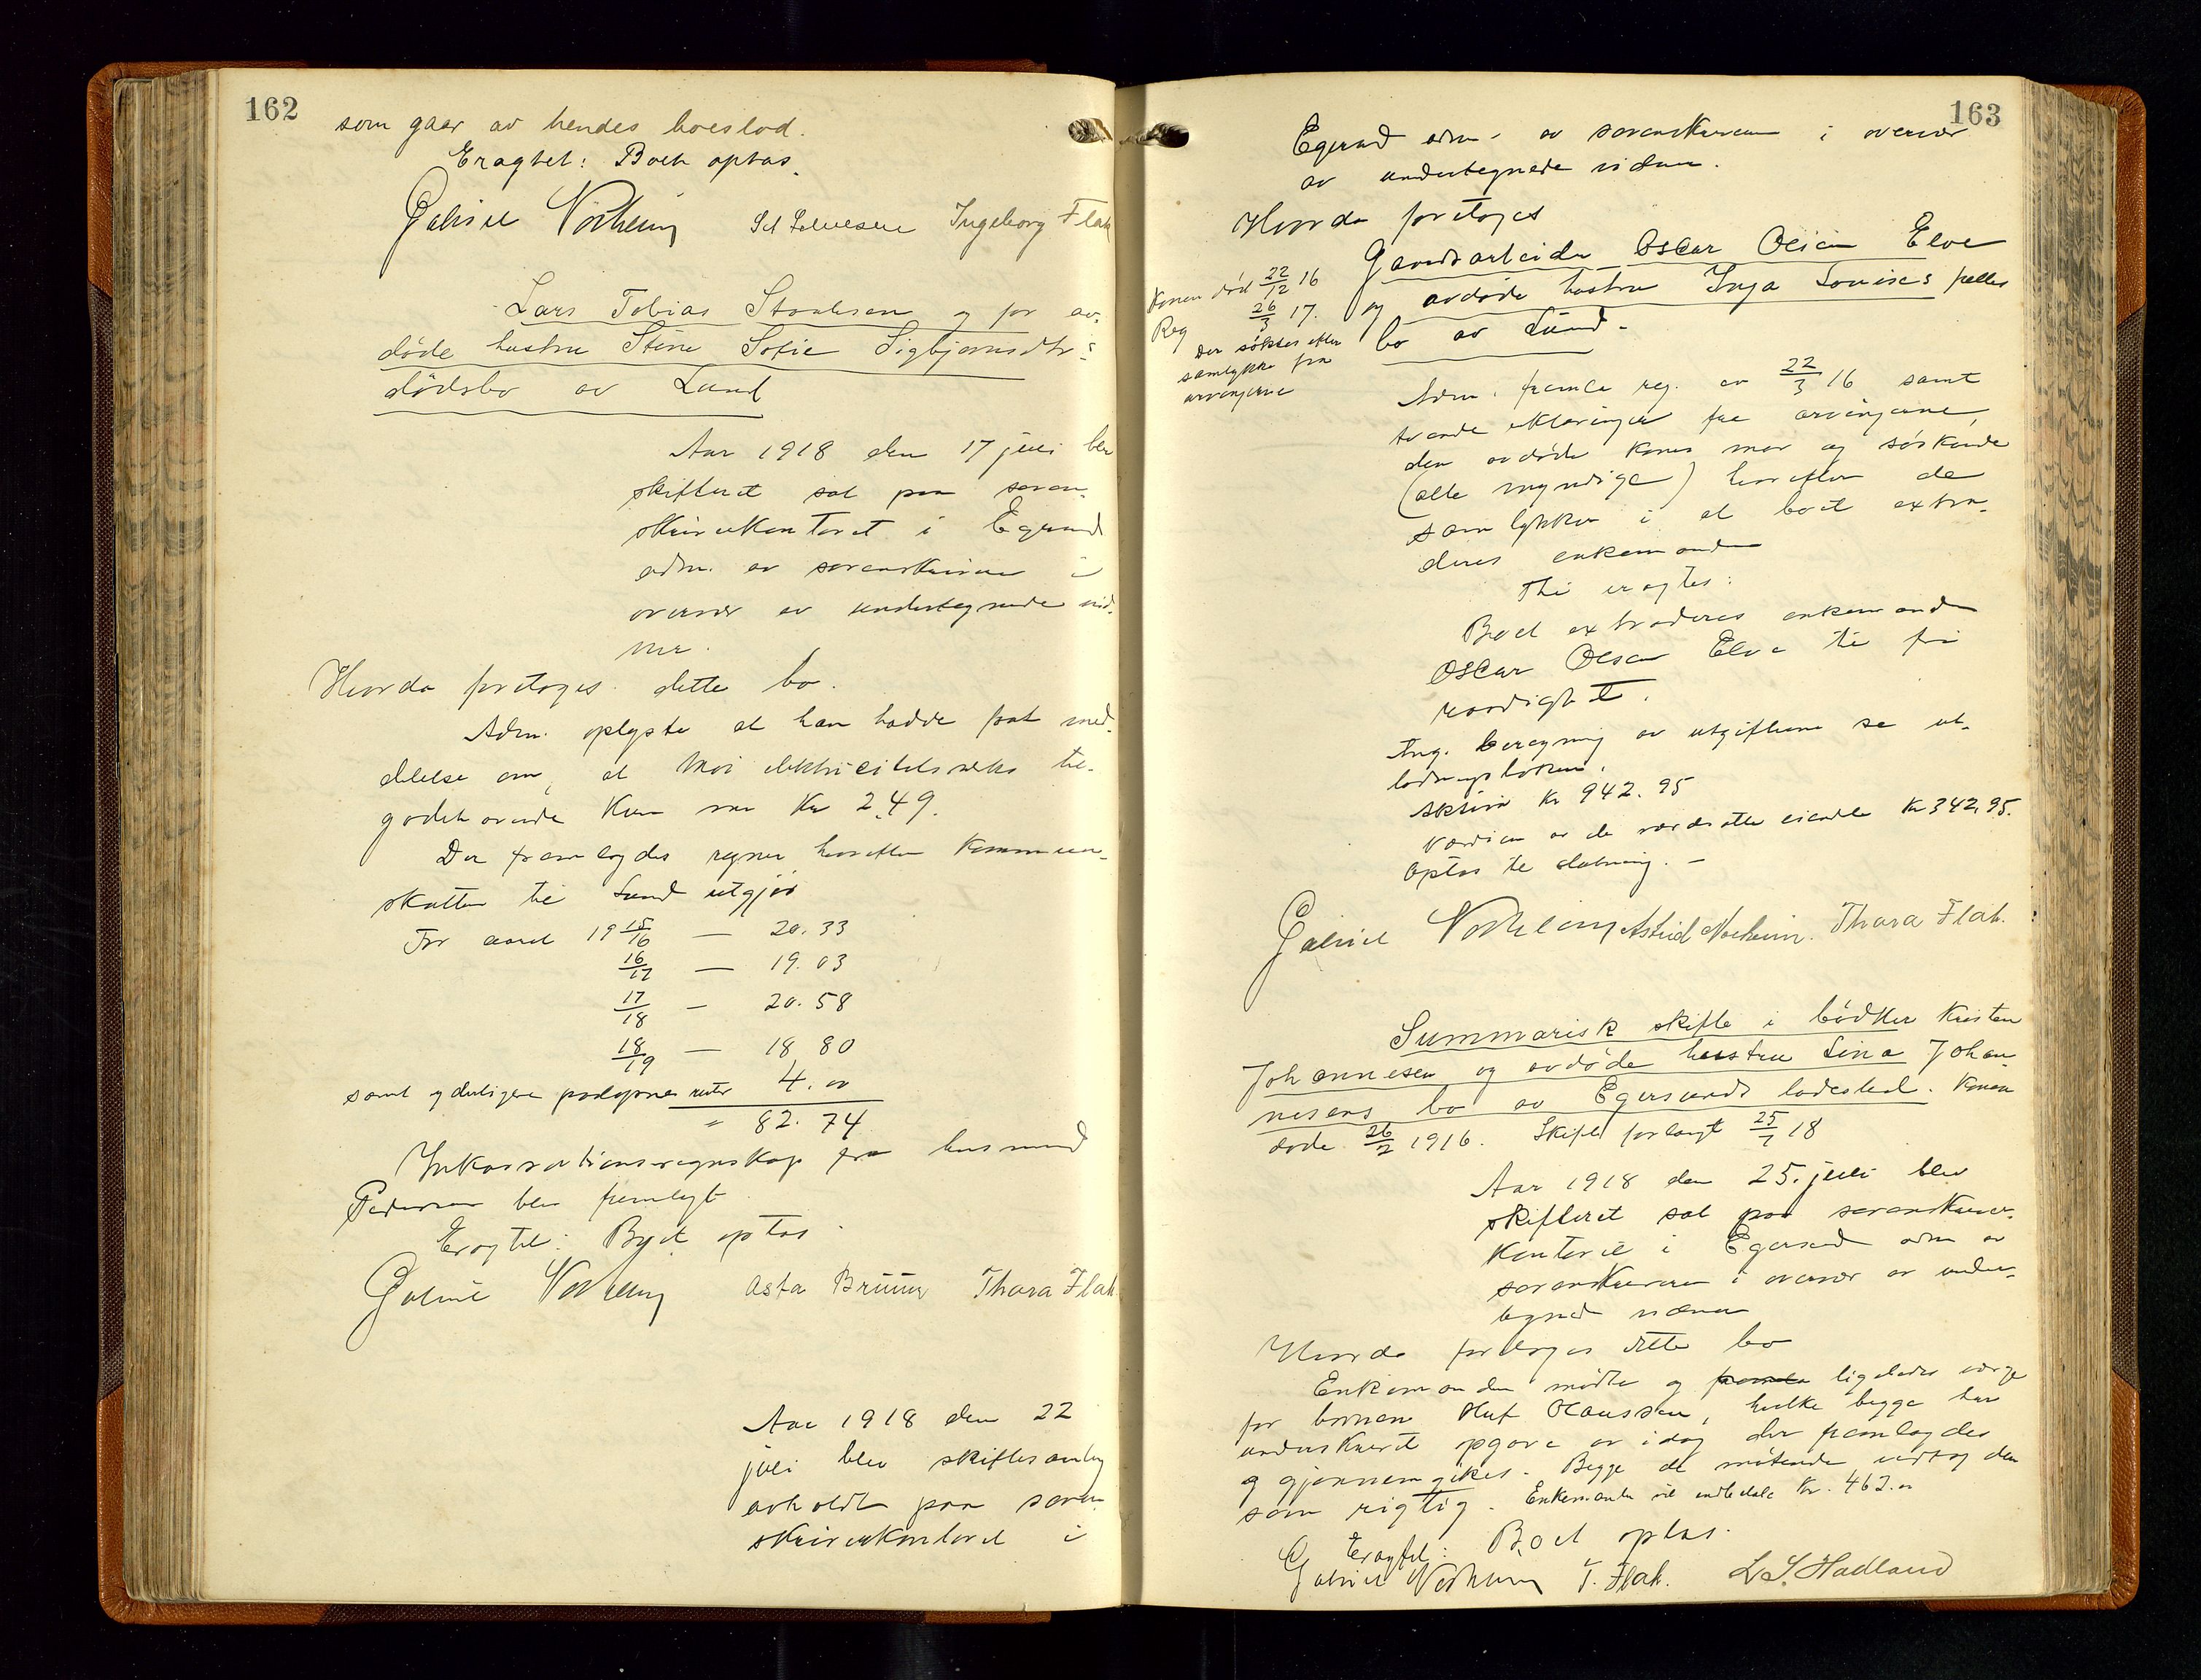 162
som gaar av hendes boeslod.
Eragtet: Boet optas.
Gabriel Norheim Ingeborg Flak
Lars Tobias og for av-
døde hustru Stine Sofie Sigbjørnsdtr.s
dødsbo av Lund
Aar 1918 den 17 juli blev
skifteret sat paa soren-
skriverkontoret i Egersund
adm. av sorenskriveren i
overvær av undertegnede vid-
ner.
Hvorda foretoges dette bo.
Adm. oplyste at han hadde faat med-
delelse om, at Moi elektricitetsverks til-
godehavende kun var Kr 2,49.
Der fremlagdes regner hvorefter kommune-
skatten til Lund utgjør
For aaret 19 15/16 — 20.33
16/17 — 19.03
17/18 — 20.58
18/19 — 18,80
samt yderligere paaløpne renter 4.00
= 82.74
Inkassationsregnskap fra lensmand
Pedersen blev fremlagt
Eragtet: Boet optas.
Gabriel Norheim Asta Brüner Thora Flak
Aar 1918 den 22
juli blev skiftesamling
avholdt paa soren-
skriverkontoret i
163
Egersund adm. av sorenskriveren i overvær
av undertegnede vidner.
Hvorda foretoges
Gaardsarbeider Oscar Olsen Elve
og avdøde hustru Inga Louises fælles
bo av Lund.
Konen død 22/12 16
Reg 26/3 17.
Der søktes efter
samtykke fra
arvingerne
Adm. fremla reg. av 22/3 16 samt
tvende erklæringer fra arvingerne,
den avdøde kones mor og søskende
(alle myndige) hvorefter de
samtykker i at boet extra-
deres enkemanden
Thi eragtes:
Boet extraderes enkemanden
Oscar Olsen Elve til fri
raadighet.
Ang. beregning av utgifterne se ut-
lodningsboken.
Aktiva Kr 942.95
Værdien av de værdsatte eiendele Kr 342,95.
Optas til slutning. —
Gabriel Norheim Astrid Norheim. Thora Flak.
Summarisk skifte i bødker Kristen
Johannesen og avdøde hustru Lina Johan
nesens bo av Egersunds ladested. Konen
døde 26/2 1916. Skifte forlangt 25/7 18
Aar 1918 den 25. juli blev
skifteret sat paa sorenskriver-
kontoret i Egersund adm av
sorenskriveren i overvær av under-
tegnede vidner
Hvorda foretoges dette bo
Enkemanden møtte og fremla ligeledes verge
for børnene Oluf Olaussen, hvilke begge har
underskrevet opgave av idag der fremlagdes
og gjennemgikkes. Begge de møtende vedtog den
som rigtig. Enkemanden vil indbetale Kr. 462.00
Eragtet: Boet optas.
Gabriel Norheim T. Flak. L. S. Hadland